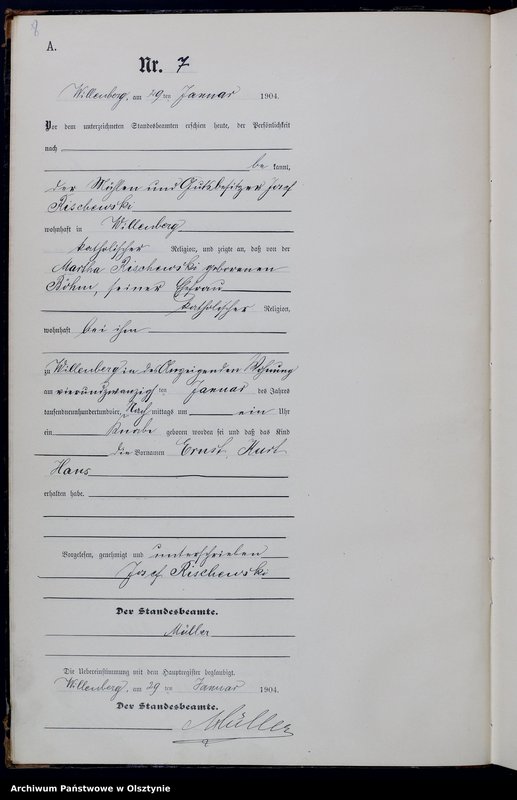 8
A.
Nr. 7
Willenberg, am 29ten Januar 1904.
Vor dem unterzeichneten Standesbeamten erschien heute, der Persönlichkeit
nach
be kannt,
der Mühlen und Gutsbesitzer Josef
Rischewski
wohnhaft in Willenberg
katholischer Religion, und zeigte an, daß von der
Martha Rischewski geborenen
Böhm, seiner Ehefrau
katholischer Religion,
wohnhaft bei ihm
zu Willenberg in des Anzeigenden Wohnung
am vierundzwanzigsten Januar des Jahres
tausendneunhundertundvier, Nachmittags um ein Uhr
ein Knabe geboren worden sei und daß das Kind
die Vornamen Ernst, Kurt
Hans
erhalten habe.
Vorgelesen, genehmigt und unterschrieben
Josef Rischewski
Der Standesbeamte.
Müller
Die Uebereinstimmung mit dem Hauptregister beglaubigt.
Willenberg, am 29ten Januar 1904.
Der Standesbeamte.
Müller
Archiwum Państwowe w Olsztynie